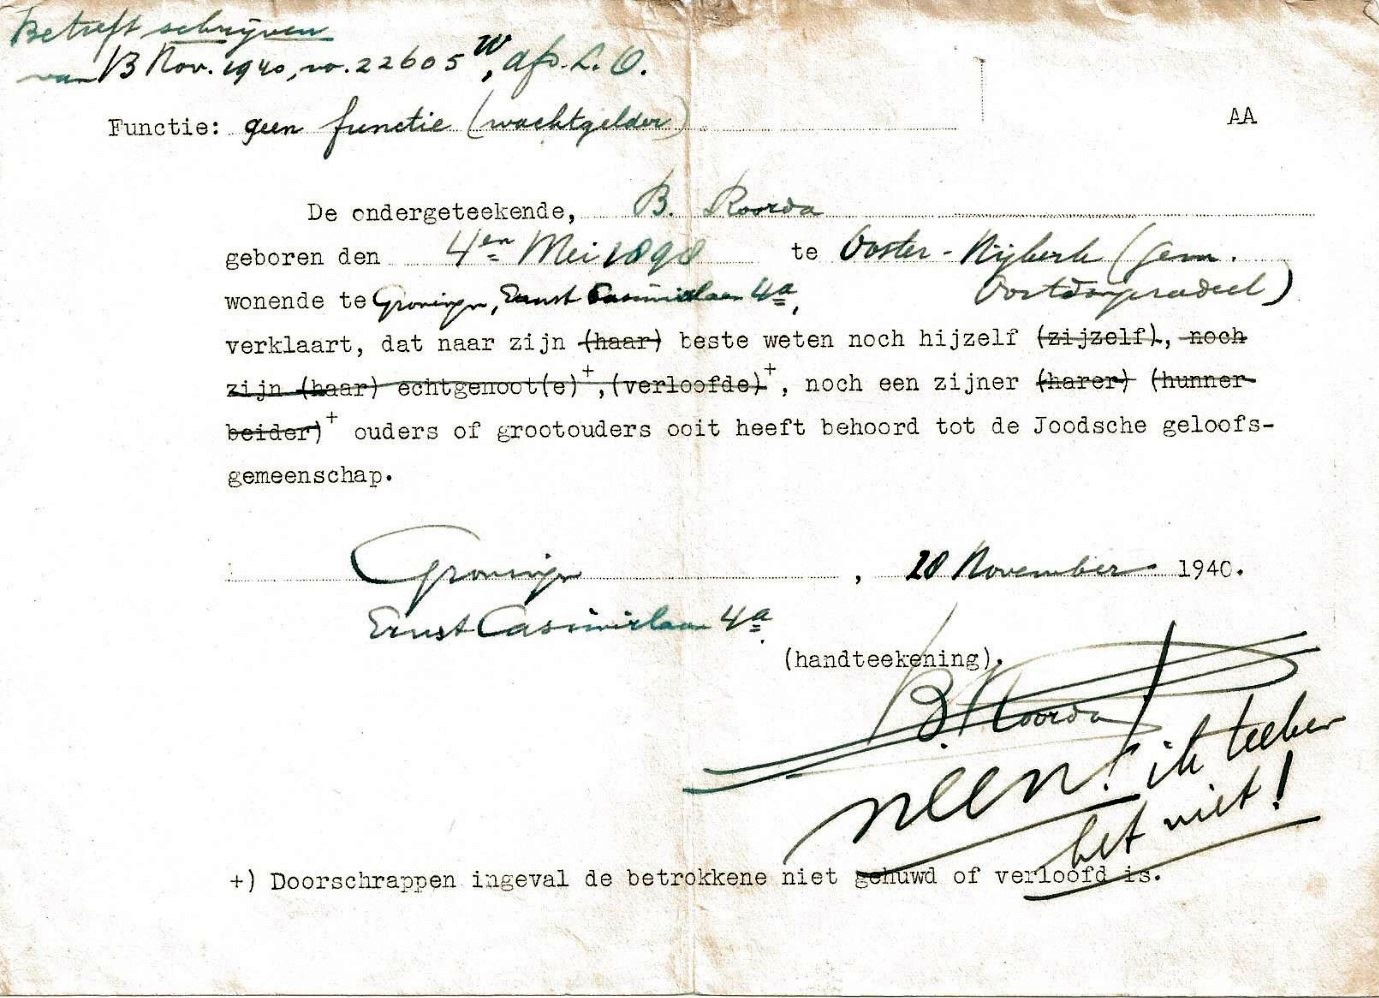 Betreft schrijven
van 13 Nov. 1940, no. 22605 W, afd. L.O.
Functie: geen functie (wachtgelder)
AA
De ondergeteekende, B. Roorda
geboren den 4en Mei 1898 te Ooster-Nijkerk (gem.
wonende te Groningen, Ernst Casimirlaan 4a, Oostdongeradeel)
verklaart, dat naar zijn (haar) beste weten noch hijzelf (zijzelf), noch
zijn (haar) echtgenoot(e)+, (verloofde)+, noch een zijner (harer) (hunner
beider)+ ouders of grootouders ooit heeft behoord tot de Joodsche geloofs-
gemeenschap.
Groningen, November 1940.
Ernst Casimirlaan 4a
(handteekening).
B. Roorda
neen! ik teeken
het niet!
+) Doorschrappen ingeval de betrokkene niet gehuwd of verloofd is.